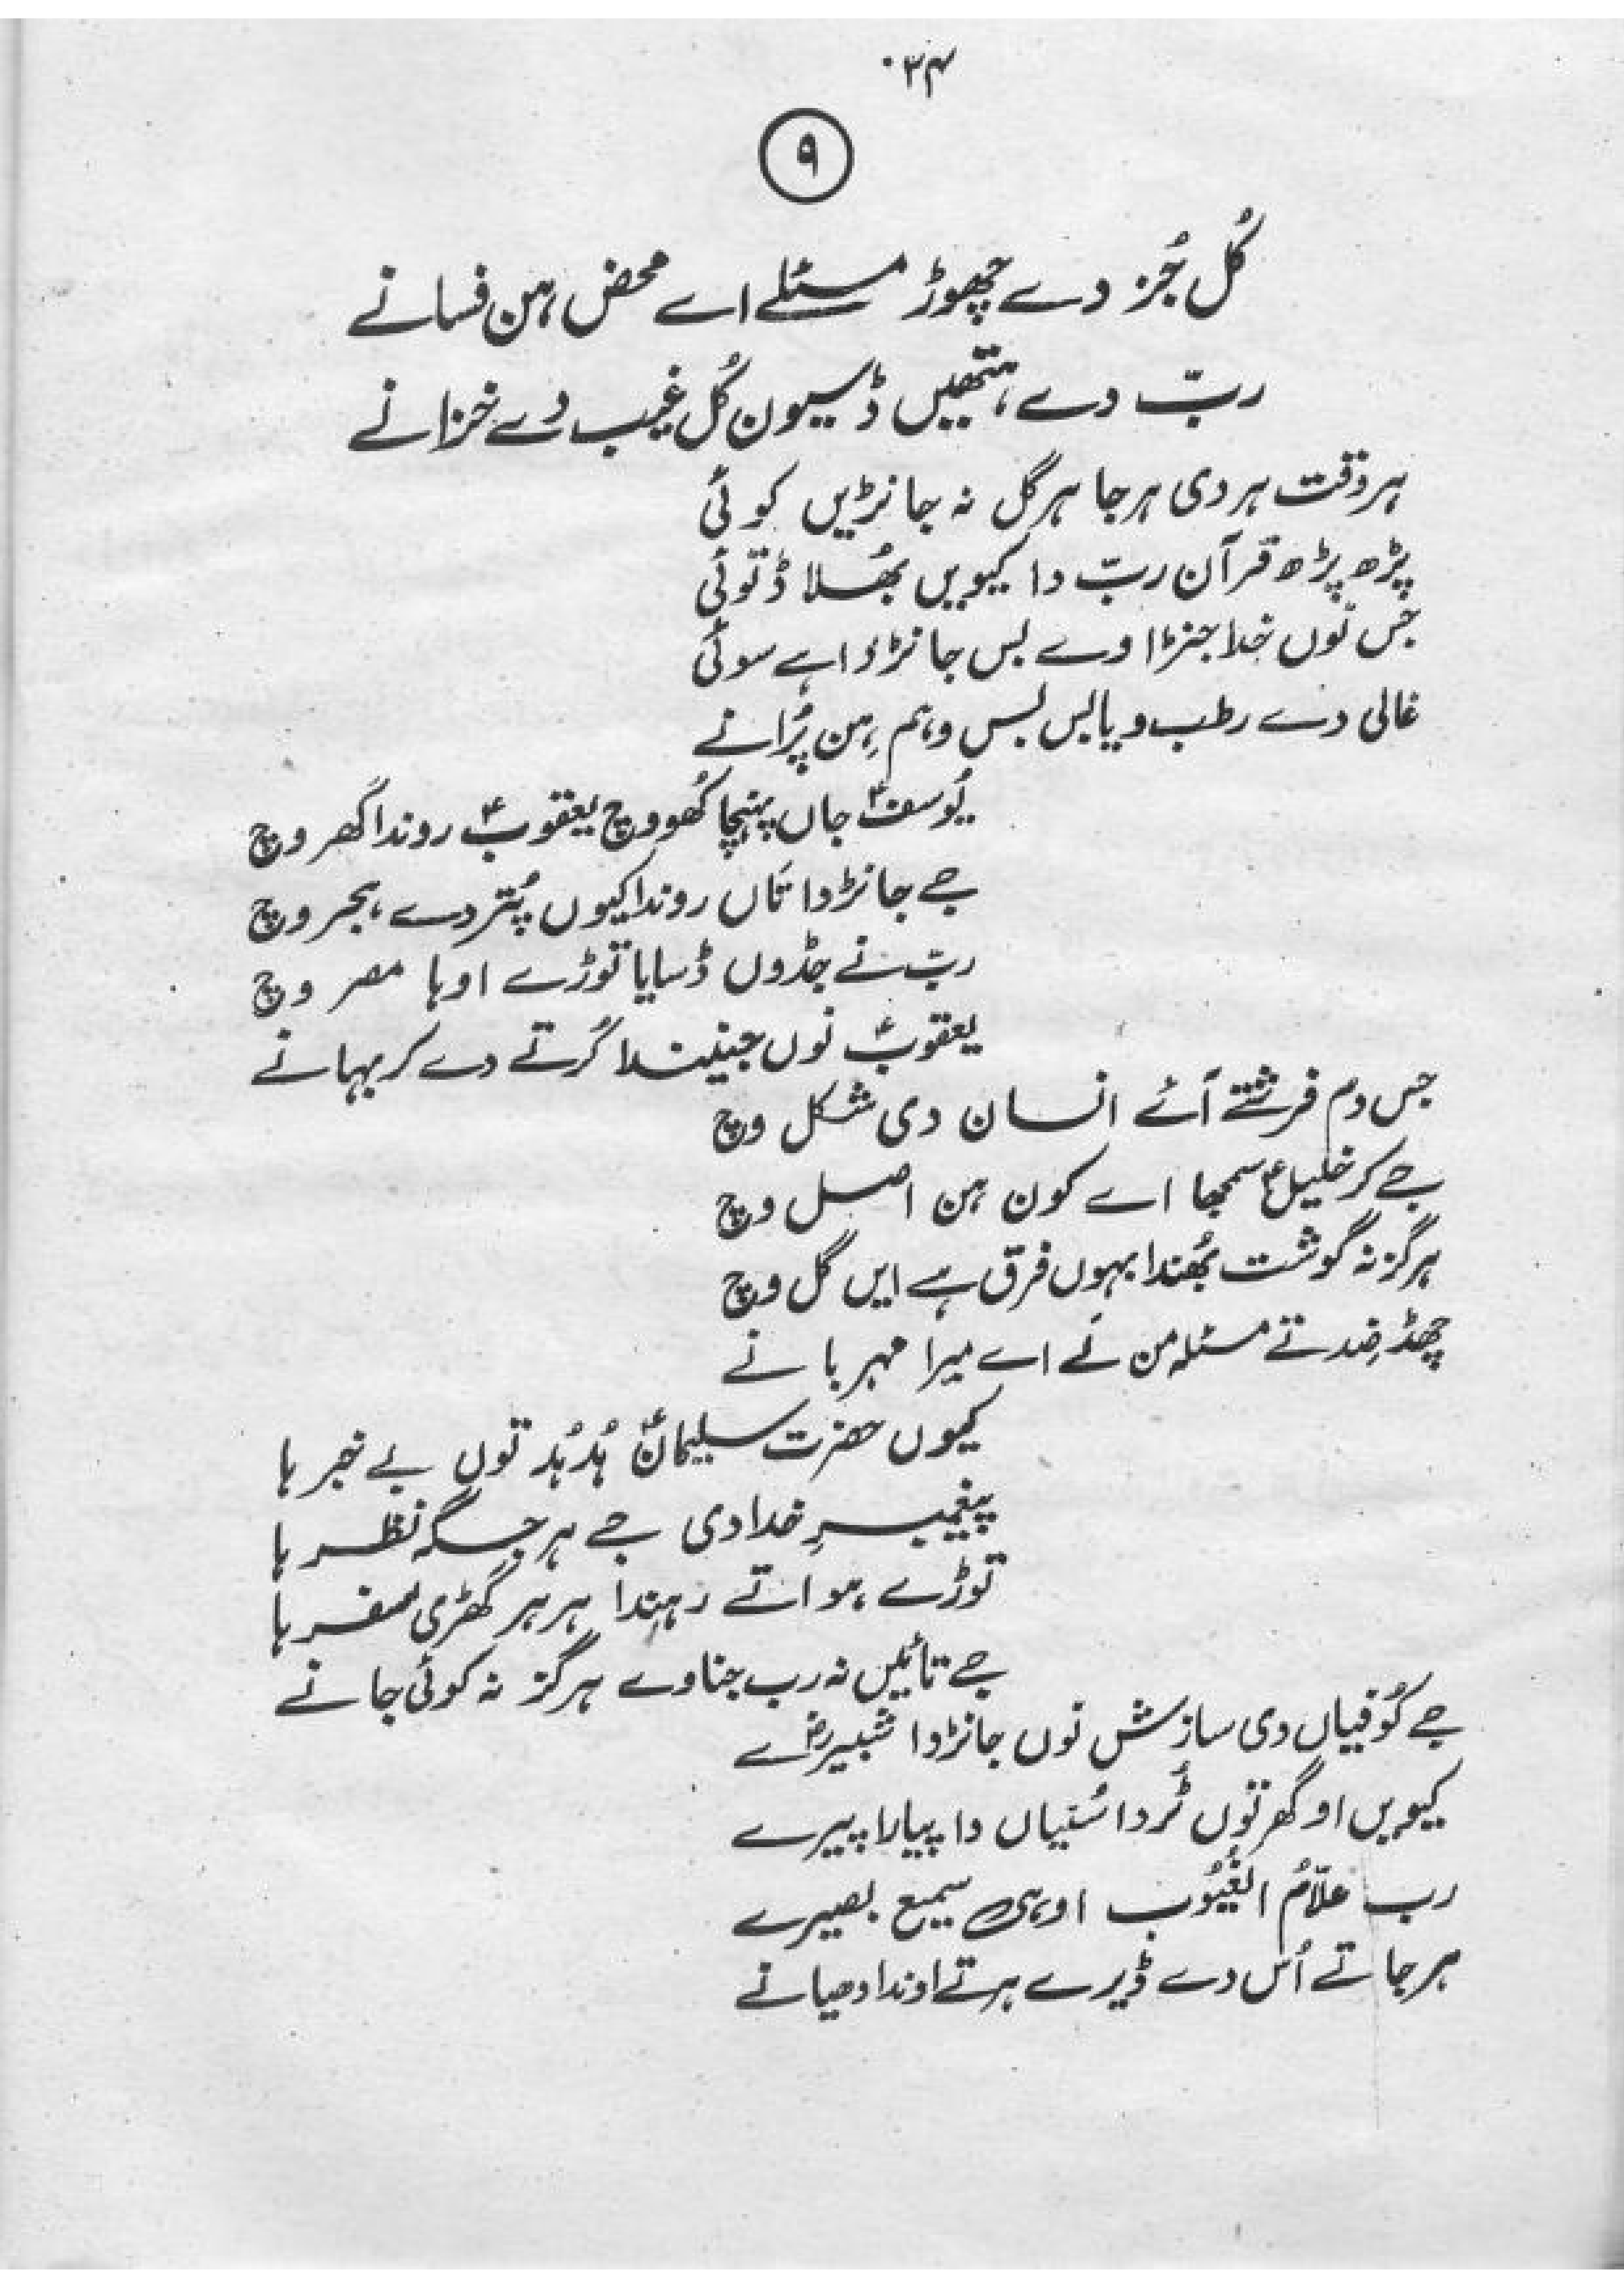 ۳۴
۹
کُل جُز دے چھوڑ مسئلے اے محض ہن فسانے
ربّ دے ہتھیں ڈسیون کُل غیب دے خزانے
ہر وقت ہر دی ہر جا ہر گل نہ جانڑیں کوئی
پڑھ پڑھ قرآن ربّ دا کیویں بھُلا ڈتوئی
جس نوں خدا جنڑاوے بس جانڑدا ہے سوئی
غالی دے رطب و یابس بس وہم ہن پُرانے
یُوسفؑ جاں پہنچا کُھو وچ یعقوبؑ روندا گھر وچ
جے جانڑدا تاں روندا کیوں پُتر دے ہجر وچ
ربّ نے جڈوں ڈسایا توڑے او ہا مصر وچ
یعقوبؑ نوں جینیندا کُرتے دے کر بہانے
جس دم فرشتے آئے انسان دی شکل وچ
جے کر خلیلؑ سمجھا اے کون ہن اصل وچ
ہرگز نہ گوشت بُھندا بہوں فرق ہے ایں گل وچ
چھڈ ضد تے مسئلہ من نے اے میرا مہربانے
کیوں حضرت سلیمانؑ ہُدہُد توں بے خبر ہا
پیغمبرِ خدا دی جے ہر جگہ نظر ہا
توڑے ہوا تے رہندا ہر ہر گھڑی سفر ہا
جے تائیں نہ رب جناوے ہرگز نہ کوئی جانے
جے کُوفیاں دی سازش نوں جانڑدا شبیرؓ اے
کیویں او گھر توں ٹُردا سُنیاں دا پیارا پیرے
رب علّامُ الغُیُوب اوہی سمیع بصیرے
ہر جا تے اُس دے ڈیرے ہر تے اوندا دھیانے